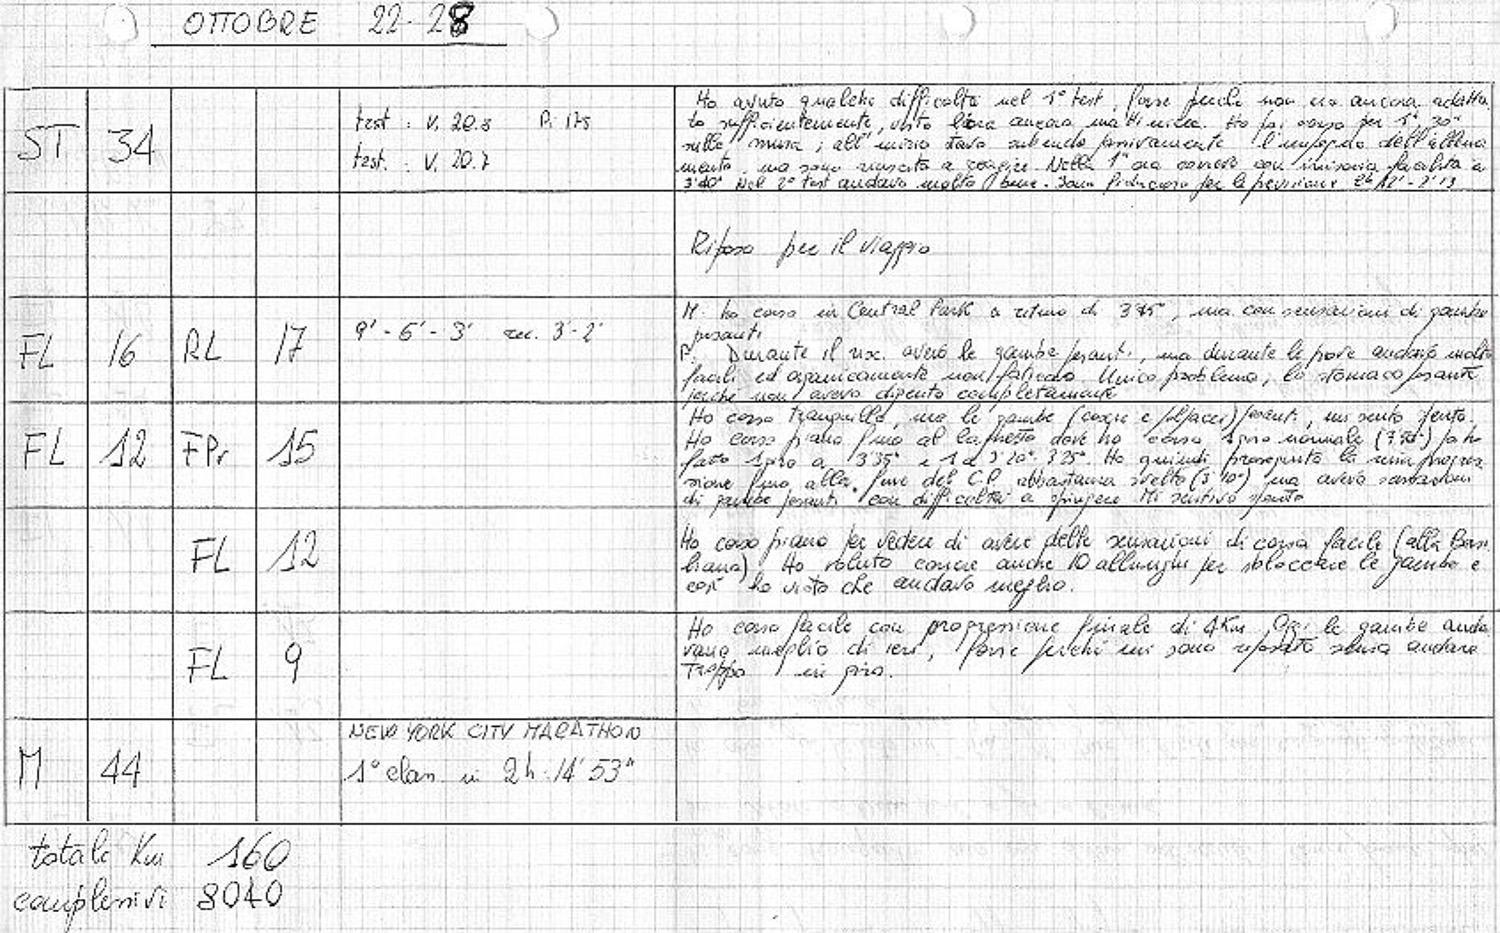 OTTOBRE 22-28
ST 34
test : V. 20.8 P. 175
test. : V. 20.7
Ho avuto qualche difficoltà nel 1° test, forse perché non ero ancora adatta
to sufficientemente, ancora mattiniera. Ho poi corso per 1h 30"
sulle mura; all'inizio stavo subendo passivamente l'impegno dell'allena
mento, ma sono riuscito a reagire. Nella 1ª ora correvo con irrisoria facilità a
3'40" Nel 2° test andavo molto bene. Sono fiducioso per la previsione 2h 12' - 2'13
Riposo per il viaggio
FL 16 RL 17
9' - 6' - 3' rec. 3'-2'
M. ho corso in Central Park a ritmo di 3'45", ma con sensazioni di gambe
pesanti
P. Durante il risc. avevo le gambe pesanti, ma durante le prove andavo molto
facile ed organicamente non faticavo. Unico problema, lo stomaco pesante
perché non avevo digerito completamente
FL 12 FPr 15
Ho corso tranquillo, ma le gambe pesanti, mi sento
Ho corso piano fino al laghetto dove ho corso 1 giro normale ho
fatto 1 giro a 3'35" e 1 a 3'20" 3'25". Ho quindi proseguito la mia progres
sione fino alla fine del C.P. abbastanza svelto (3'10") ma avevo sensazioni
di gambe pesanti con difficoltà a spingere Mi sentivo
FL 12
Ho corso piano per vedere di avere delle sensazioni di corsa facile (alla
). Ho voluto correre anche 10 allunghi per sbloccare le gambe e
così ho visto che andavo meglio.
FL 9
Ho corso facile con progressione finale di 4Km. Oggi le gambe anda
vano meglio di ieri, forse perché mi sono riposato senza andare
troppo in giro.
M 44
NEW YORK CITY MARATHON
1° clas. in 2h.14'53"
totale Km 160
complessivi 8040